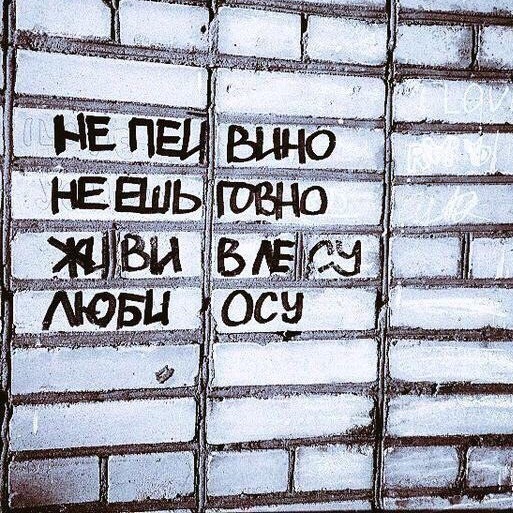 НЕ ПЕЙ ВИНО
НЕ ЕШЬ ГОВНО
ЖИВИ В ЛЕСУ
ЛЮБИ ОСУ